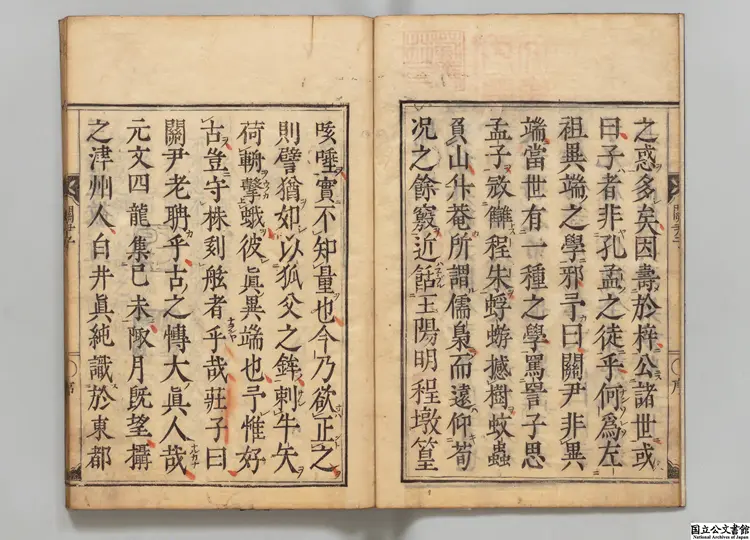 之惑多矣因壽於梓公諸世或
曰子者非孔孟之徒乎何爲左
祖異端之學邪予曰關尹非異
端當世有一種之學罵詈子思
孟子讎程朱蜉蝣撼樹蚊蟲
負山升菴所謂儒梟而遠仰荀
況之餘竅近餂王陽明程墩篁
咳唾實不知量也今乃欲正之
則譬猶如以狐父之鉾刺牛矢
荷斬擊蛾彼眞異端也予惟好
古豈守株刻舷者乎哉莊子曰
關尹老聃乎古之博大眞人哉
元文四龍集己未陬月旣望攝
之津州人白井眞純識於東都
關尹子
序
國立公文書館
National Archives of Japan